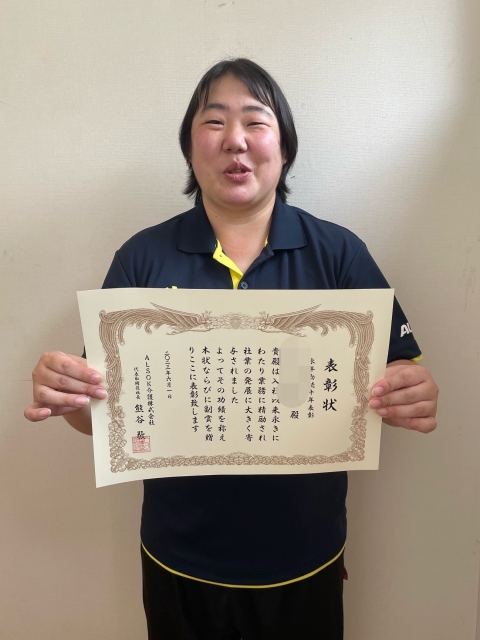 表彰状
永年勤続十年表彰
殿
貴殿は入社以来永きに
わたり業務に精励され
社業の発展に大きく寄
与されました
よってその功績を称え
本状ならびに副賞を贈
りここに表彰致します
二〇二三年六月一日
ALSOK介護株式会社
代表取締役社長
熊谷 敬
AL